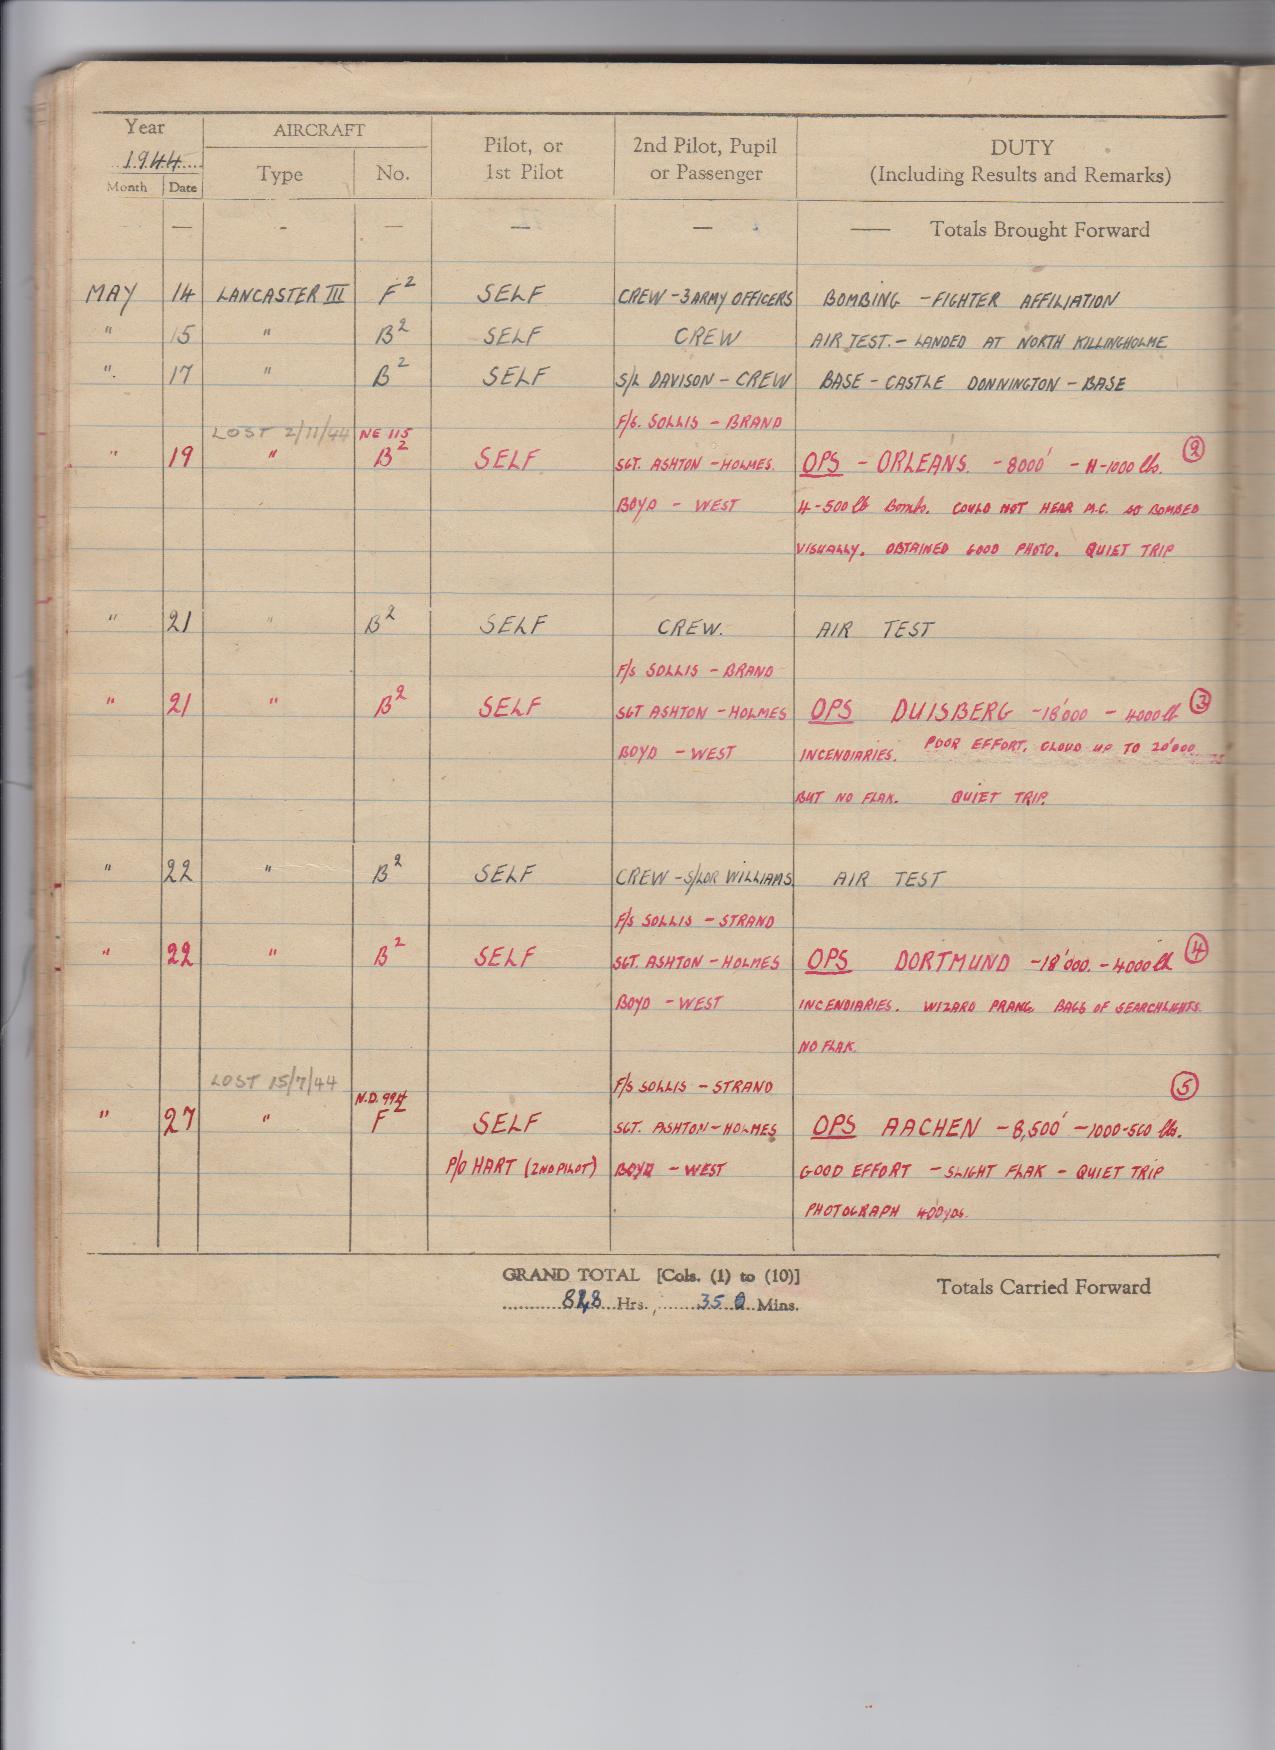 Year AIRCRAFT Pilot, or 1st Pilot 2nd Pilot, Pupil or Passenger DUTY (Including Results and Remarks)
1944
Month Date Type No.
— — - — — — —— Totals Brought Forward
MAY 14 LANCASTER III F2 SELF CREW - 3 ARMY OFFICERS BOMBING - FIGHTER AFFILIATION
" 15 " B2 SELF CREW AIR TEST. - LANDED AT NORTH KILLINGHOLME
" 17 " B2 SELF S/L DAVISON - CREW BASE - CASTLE DONNINGTON - BASE
LOST 2/11/44 NE 115 F/S. SOLLIS - BRAND
" 19 " B2 SELF SGT. ASHTON - HOLMES. OPS - ORLEANS. - 8000' - 11-1000 lbs. 2
BOYD - WEST 4-500 lb Bombs. COULD NOT HEAR M.C. SO BOMBED
VISUALLY. OBTAINED GOOD PHOTO. QUIET TRIP
" 21 " B2 SELF CREW. AIR TEST
F/S SOLLIS - BRAND
" 21 " B2 SELF SGT ASHTON - HOLMES OPS DUISBERG - 18'000 - 4000 lb 3
BOYD - WEST INCENDIARIES. POOR EFFORT. CLOUD UP TO 20'000
BUT NO FLAK. QUIET TRIP.
" 22 " B2 SELF CREW - S/LDR WILLIAMS AIR TEST
F/S SOLLIS - STRAND
" 22 " B2 SELF SGT. ASHTON - HOLMES OPS DORTMUND - 18'000. - 4000 lb 4
BOYD - WEST INCENDIARIES. WIZARD PRANG. BAGS OF SEARCHLIGHTS.
NO FLAK.
LOST 15/7/44 N.D. 994 F/S SOLLIS - STRAND 5
" 27 " F2 SELF SGT. ASHTON - HOLMES OPS AACHEN - 8,500' - 1000-500 lbs.
P/O HART (2ND PILOT) BOYD - WEST GOOD EFFORT - SLIGHT FLAK - QUIET TRIP
PHOTOGRAPH 400 yds.
GRAND TOTAL [Cols. (1) to (10)] Totals Carried Forward
Hrs. 35 Mins.